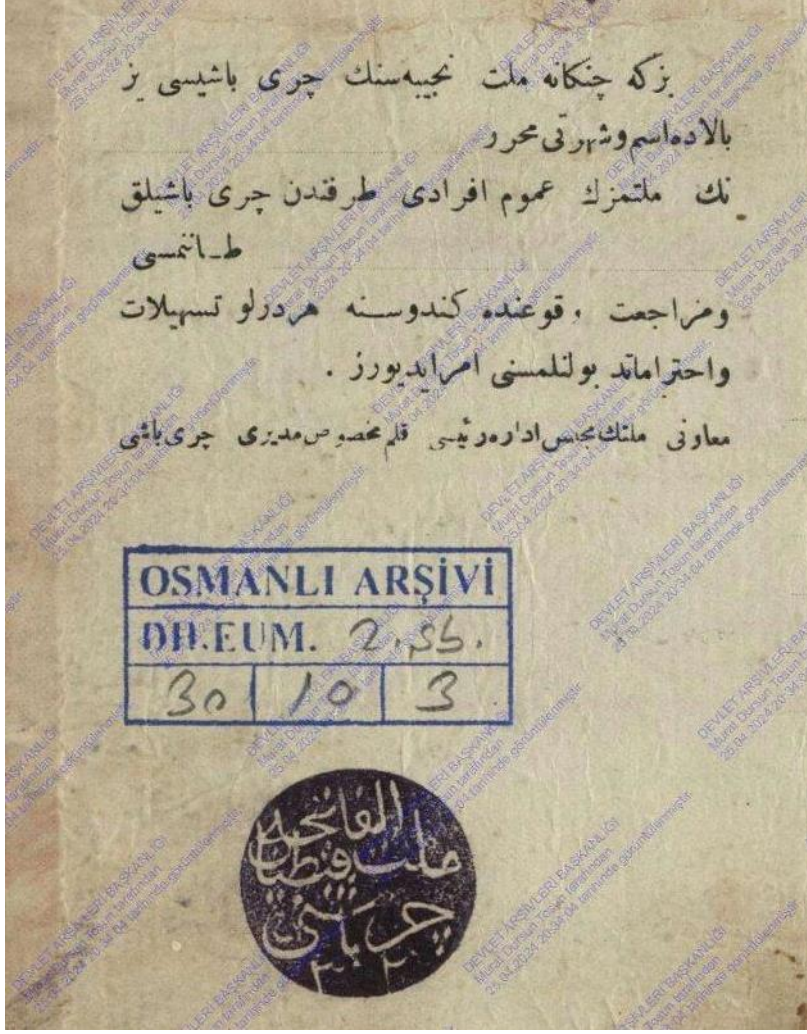 بزكه چنكانه ملت نجيبه‌سنك چری باشیسی یز
بالاده‌اسم‌وشهرتی محرر
نك ملتمزك عموم افرادی طرقندن چری باشیلق
طـانمسی
ومراجعت وقوعنده كندوسـنه هردرلو تسهیلات
واحتراماتد بولنلمسنی امرایدیورز .
معاونی ملتك‌مجلس‌اداره‌رئیسی قلم‌مخصوص‌مدیری چری‌باشی
OSMANLI ARŞİVİ
DH.EUM. 2.Şb.
30 | 10 | 3
ملت قبطیان
چری باشی
٣٢
DEVLET ARŞİVLERİ BAŞKANLIĞI
Murat Dursun Tosun tarafından
25.04.2024 20:34:04 tarihinde görüntülenmiştir.